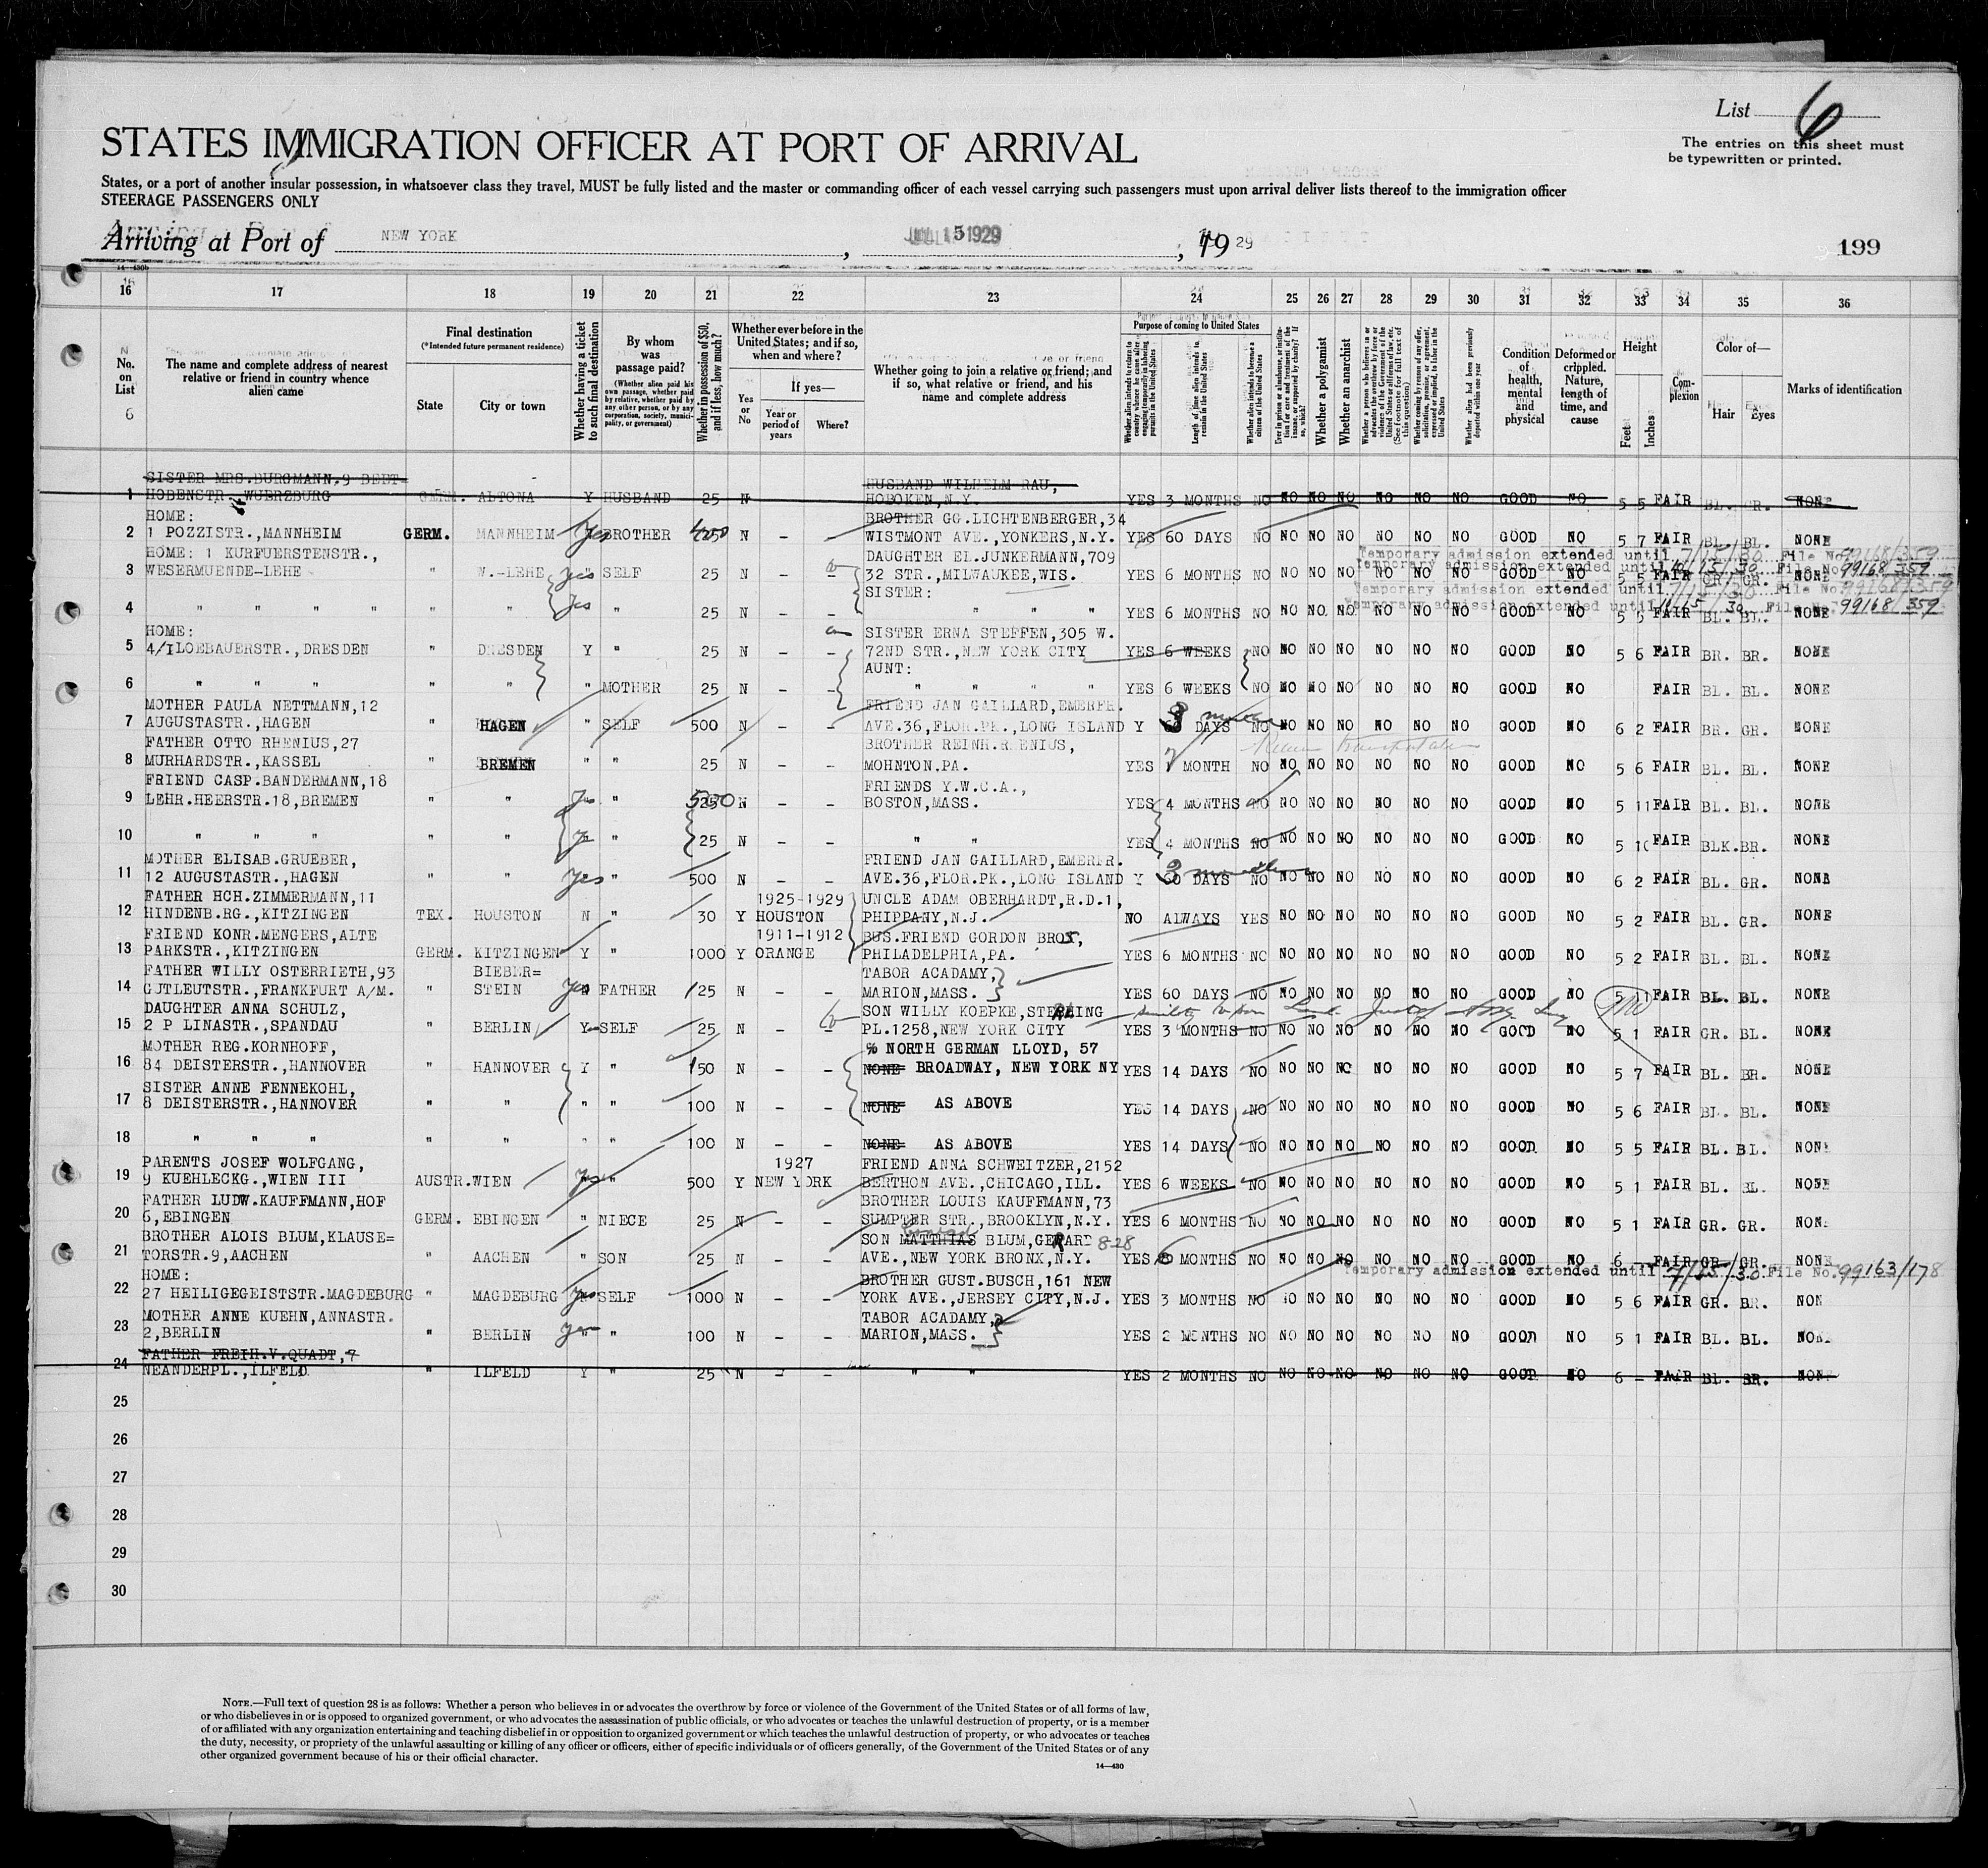 List 6
The entries on this sheet must
be typewritten or printed.
STATES IMMIGRATION OFFICER AT PORT OF ARRIVAL
States, or a port of another insular possession, in whatsoever class they travel, MUST be fully listed and the master or commanding officer of each vessel carrying such passengers must upon arrival deliver lists thereof to the immigration officer
STEERAGE PASSENGERS ONLY
Arriving at Port of NEW YORK, 15 1929, 1929 199
16 17 18 19 20 21 22 23 24 25 26 27 28 29 30 31 32 33 34 35 36
No. on List
The name and complete address of nearest relative or friend in country whence alien came
Final destination
(*Intended future permanent residence)
State City or town
Whether having a ticket to such final destination
By whom was passage paid?
(Whether alien paid his own passage, whether paid by relative, whether paid by any other person, or by any corporation, society, municipality, or government)
Whether in possession of $50, and if less, how much?
Whether ever before in the United States; and if so, when and where?
Yes or No
If yes—
Year or period of years Where?
Whether going to join a relative or friend; and if so, what relative or friend, and his name and complete address
Purpose of coming to United States
Length of time alien intends to remain in the United States
Whether alien intends to become a citizen of the United States
Whether a polygamist
Whether an anarchist
Condition of health, mental and physical
Deformed or crippled. Nature, length of time, and cause
Height
Feet Inches
Complexion
Color of—
Hair Eyes
Marks of identification
SISTER MRS.BURGMANN,9 BEET= HUSBAND WILHELM RAU,
1 HOBENSTR. WUERZBURG GERM. ALTONA Y HUSBAND 25 N HOBOKEN,N.Y. YES 3 MONTHS NO NO NO NO NO NO NO GOOD NO 5 5 FAIR BL. GR. NONE
HOME: BROTHER GG.LICHTENBERGER,34
2 1 POZZISTR.,MANNHEIM GERM. MANNHEIM Yes BROTHER N - - WISTMONT AVE.,YONKERS,N.Y. YES 60 DAYS NO NO NO NO NO NO NO GOOD NO 5 7 FAIR BL. BL. NONE
HOME: 1 KURFUERSTENSTR., DAUGHTER EL.JUNKERMANN,709 Temporary admission extended until 7/15/30. File No. 99168/359
3 WESERMUENDE-LEHE " W.-LEHE Yes SELF 25 N - - 32 STR.,MILWAUKEE,WIS. YES 6 MONTHS NO NO NO NO NO NO NO GOOD NO 5 5 FAIR GR. GR. NONE
Temporary admission extended until File No. 99168/359
SISTER: Temporary admission extended until File No. 99168/359
4 " " " " " " Yes " 25 N - - " " " YES 6 MONTHS NO NO NO NO NO NO NO GOOD NO 5 5 FAIR BL. BL. NONE
Temporary admission extended until File No. 99168/359
HOME: SISTER ERNA STEFFEN,305 W.
5 4/ILOEBAUERSTR.,DRESDEN " DRESDEN Y " 25 N - - 72ND STR.,NEW YORK CITY YES 6 WEEKS NO NO NO NO NO NO NO GOOD NO 5 6 FAIR BR. BR. NONE
AUNT:
6 " " " " " " MOTHER 25 N - - " " " " YES 6 WEEKS NO NO NO NO NO NO NO GOOD NO FAIR BL. BL. NONE
MOTHER PAULA NETTMANN,12 FRIEND JAN GAILLARD,EMERFR.
7 AUGUSTASTR.,HAGEN " HAGEN " SELF 500 N - - AVE.36,FLOR.PK.,LONG ISLAND Y 60 DAYS 3 months NO NO NO NO NO NO NO GOOD NO 6 2 FAIR BR. GR. NONE
FATHER OTTO RHENIUS,27 BROTHER REINH.RHENIUS,
8 MURHARDSTR.,KASSEL " BREMEN " " 25 N - - MOHNTON,PA. YES 1 MONTH NO NO NO NO NO NO NO GOOD NO 5 6 FAIR BL. BL. NONE
FRIEND CASP.BANDERMANN,18 FRIENDS Y.W.C.A.,
9 LEHR.HEERSTR.18,BREMEN " " Yes " N - - BOSTON,MASS. YES 4 MONTHS NO NO NO NO NO NO NO GOOD NO 5 11 FAIR BL. BL. NONE
10 " " " " " Yes " 25 N - - " " YES 4 MONTHS NO NO NO NO NO NO NO GOOD NO 5 10 FAIR BLK.BR. NONE
MOTHER ELISAB.GRUEBER, FRIEND JAN GAILLARD,EMERFR.
11 12 AUGUSTASTR.,HAGEN " " Yes " 500 N - - AVE.36,FLOR.PK.,LONG ISLAND Y 60 DAYS 3 months NO NO NO NO NO NO NO GOOD NO 6 2 FAIR BL. GR. NONE
FATHER HCH.ZIMMERMANN,11 1925-1929 UNCLE ADAM OBERHARDT,R.D.1,
12 HINDENB.RG.,KITZINGEN TEX. HOUSTON N " 30 Y HOUSTON PHIPPANY,N.J. NO ALWAYS YES NO NO NO NO NO NO GOOD NO 5 2 FAIR BL. GR. NONE
FRIEND KONR.MENGERS,ALTE 1911-1912 BUS.FRIEND GORDON BROS,
13 PARKSTR.,KITZINGEN GERM. KITZINGEN Y " 1000 Y ORANGE PHILADELPHIA,PA. YES 6 MONTHS NO NO NO NO NO NO NO GOOD NO 5 2 FAIR BL. BL. NONE
FATHER WILLY OSTERRIETH,93 BIEBER= TABOR ACADAMY,
14 GUTLEUTSTR.,FRANKFURT A/M. " STEIN Yes FATHER 125 N - - MARION,MASS. YES 60 DAYS NO NO NO NO NO NO NO GOOD NO 5 11 FAIR BL. BL. NONE
DAUGHTER ANNA SCHULZ, SON WILLY KOEPKE,STERLING
15 2 P LINASTR.,SPANDAU " BERLIN Y SELF 25 N - - PL.1258,NEW YORK CITY YES 3 MONTHS NO NO NO NO NO NO NO GOOD NO 5 1 FAIR GR. BL. NONE
MOTHER REG.KORNHOFF, % NORTH GERMAN LLOYD, 57
16 84 DEISTERSTR.,HANNOVER " HANNOVER Y " 150 N - - NONE BROADWAY, NEW YORK NY YES 14 DAYS NO NO NO NO NO NO NO GOOD NO 5 7 FAIR BL. BR. NONE
SISTER ANNE FENNEKOHL,
17 8 DEISTERSTR.,HANNOVER " " " " 100 N - - NONE AS ABOVE YES 14 DAYS NO NO NO NO NO NO NO GOOD NO 5 6 FAIR BL. BL. NONE
18 " " " " " " " 100 N - - NONE AS ABOVE YES 14 DAYS NO NO NO NO NO NO NO GOOD NO 5 5 FAIR BL. BL. NONE
PARENTS JOSEF WOLFGANG, 1927 FRIEND ANNA SCHWEITZER,2152
19 9 KUEHLECKG.,WIEN III AUSTR. WIEN Yes " 500 Y NEW YORK BERTHON AVE.,CHICAGO,ILL. YES 6 WEEKS NO NO NO NO NO NO NO GOOD NO 5 1 FAIR BL. BL. NONE
FATHER LUDW.KAUFFMANN,HOF BROTHER LOUIS KAUFFMANN,73
20 6,EBINGEN GERM. EBINGEN " NIECE 25 N - - SUMPTER STR.,BROOKLYN,N.Y. YES 6 MONTHS NO NO NO NO NO NO NO GOOD NO 5 1 FAIR GR. GR. NONE
BROTHER ALOIS BLUM,KLAUSE= SON MATTHIAS BLUM,GERARD 828
21 TORSTR.9,AACHEN " AACHEN " SON 25 N - - AVE.,NEW YORK BRONX,N.Y. YES 6 MONTHS NO NO NO NO NO NO NO GOOD NO 6 - FAIR GR. GR. NONE
Temporary admission extended until 7/15/30. File No. 99163/178
HOME: BROTHER GUST.BUSCH,161 NEW
22 27 HEILIGEGEISTSTR.MAGDEBURG " MAGDEBURG Yes SELF 1000 N - - YORK AVE.,JERSEY CITY,N.J. YES 3 MONTHS NO NO NO NO NO NO NO GOOD NO 5 6 FAIR GR. BR. NON
MOTHER ANNE KUEHN,ANNASTR. TABOR ACADAMY,
23 2,BERLIN " BERLIN Yes " 100 N - - MARION,MASS. YES 2 MONTHS NO NO NO NO NO NO NO GOOD NO 5 1 FAIR BL. BL. NONE
FATHER FREIH.V.QUADT,7
24 NEANDERPL.,ILFELD " ILFELD Y " 25 N - - " " YES 2 MONTHS NO NO NO NO NO NO NO GOOD NO 6 - FAIR BL. BR. NONE
25
26
27
28
29
30
NOTE.—Full text of question 28 is as follows: Whether a person who believes in or advocates the overthrow by force or violence of the Government of the United States or of all forms of law,
or who disbelieves in or is opposed to organized government, or who advocates the assassination of public officials, or who advocates or teaches the unlawful destruction of property, or is a member
of or affiliated with any organization entertaining and teaching disbelief in or opposition to organized government or which teaches the unlawful destruction of property, or who advocates or teaches
the duty, necessity, or propriety of the unlawful assaulting or killing of any officer or officers, either of specific individuals or of officers generally, of the Government of the United States or of any
other organized government because of his or their official character.
14—430